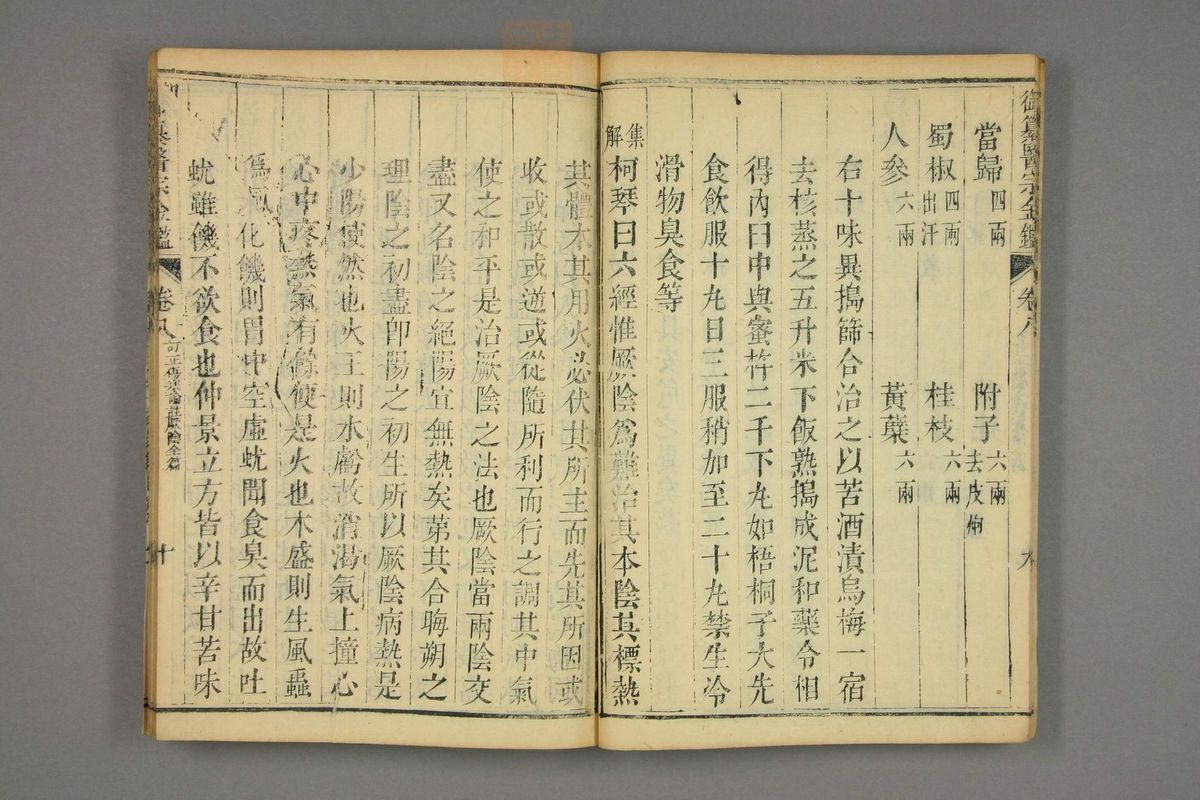 御纂醫宗金鑑 卷八 九
當歸四兩 附子六兩去皮炮
蜀椒四兩出汗 桂枝六兩
人參六兩 黃蘗六兩
右十味異搗篩合治之以苦酒漬烏梅一宿
去核蒸之五升米下飯熟搗成泥和藥令相
得內臼中與蜜杵二千下丸如梧桐子大先
食飲服十丸日三服稍加至二十丸禁生冷
滑物臭食等
集解柯琴曰六經惟厥陰爲難治其本陰其標熱
其體木其用火必伏其所主而先其所因或
收或散或逆或從隨所利而行之調其中氣
使之和平是治厥陰之法也厥陰當兩陰交
盡又名陰之絕陽宜無熱矣苐其合晦朔之
理陰之初盡卽陽之初生所以厥陰病熱是
少陽使然也火王則水虧故消渴氣上撞心
心中疼熱氣有餘便是火也木盛則生風蟲
爲風化饑則胃中空虛蚘聞食臭而出故吐
蚘雖饑不欲食也仲景立方皆以辛甘苦味
纂醫宗金鑑 卷八 訂正傷寒論註厥陰全篇 十